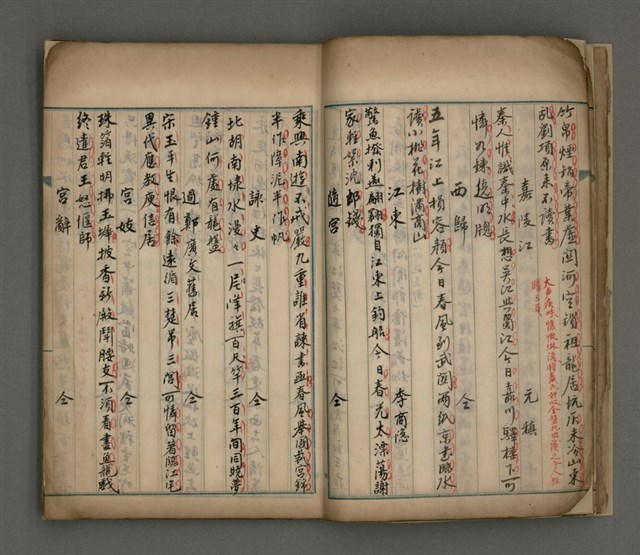 竹帛煙銷帝業虛關河空鎖祖龍居坑灰未冷山東
亂劉項原來不讀書
嘉陵江　元稹
秦人惟識秦中水長想吳江與蜀江今日嘉川驛樓下可
憐如練繞明牕
西歸　仝
五年江上損容顏今日春風到武關兩紙京書臨水
讀小桃花樹滿商山
江東　李商隱
驚魚撥剌燕翩翾獨自江東上釣船今日春光太漂蕩謝
家輕絮沈郎錢
隋宮　仝
乘興南遊不戒嚴九重誰省諫書函春風舉國裁宮錦
半作障泥半作帆
詠史　仝
北湖南埭水漫々一片降旗百尺竿三百年間同曉夢
鍾山何處有龍盤
過鄭廣文舊居　仝
宋玉平生恨有餘遠循三楚吊三閭可憐留著臨江宅
異代應教庾信居
宮妓　仝
珠箔輕明拂玉墀披香新殿鬥腰支不須看盡魚龍戲
終遣君王怒偃師
宮辭　仝